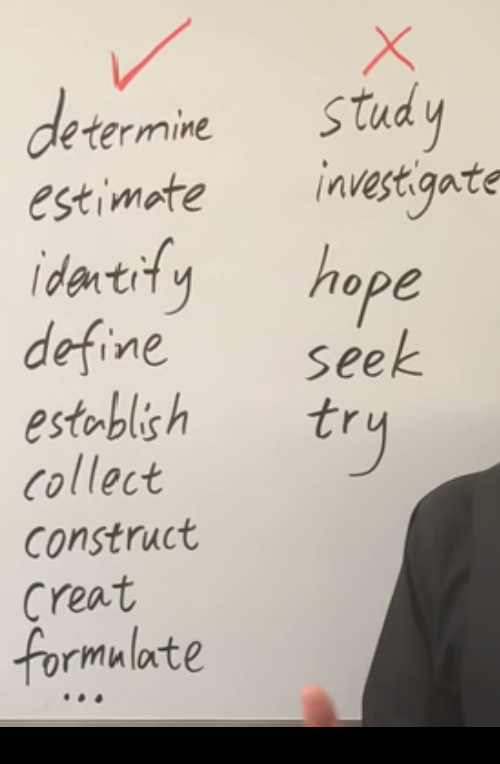 determine
estimate
identify
define
establish
collect
construct
creat
formulate
...
study
investigate
hope
seek
try